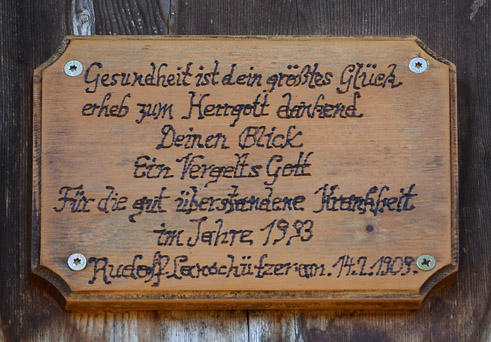 Gesundheit ist dein größtes Glück
erheb zum Herrgott dankend
Deinen Blick
Ein Vergelts Gott
Für die gut überstandene Krankheit
im Jahre 1993
Rudolf Lanschützer am. 14.2.1909.